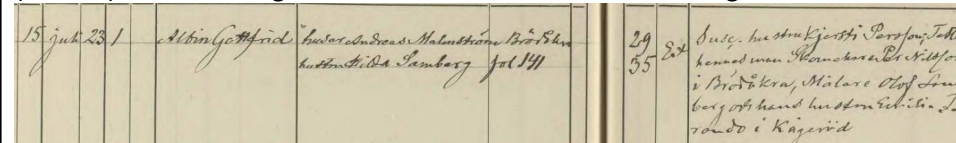 15 juli 23 1 Albin Gottfrid husar Andreas Malmström Brödåkra
hustru Hilda Samberg fol 141
29
35
Susc. hustru Kjersti Persson,
hennes man Skomakaren Per Nilsson
i Brödåkra, Målare Olof
berg och hans hustru Emilia
i Kågeröd